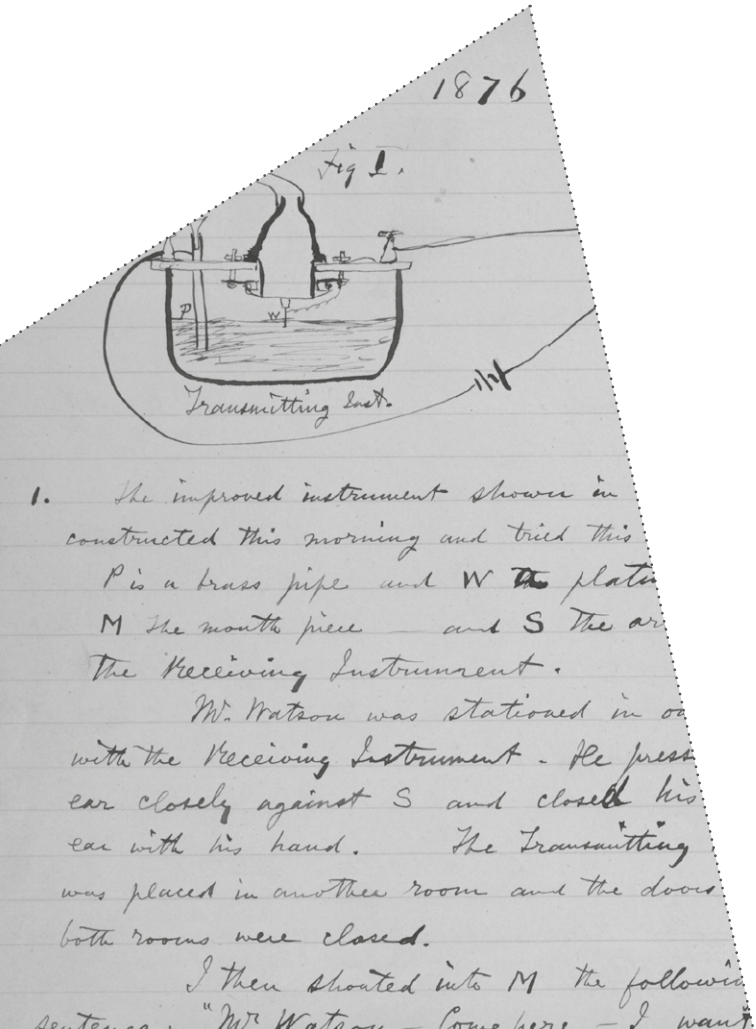 1876
Fig 1.
P
W
Transmitting Inst.
1. The improved instrument shown in
constructed this morning and tried this
P is a brass pipe and W the
M the mouth piece — and S the
the Receiving Instrument.
Mr. Watson was stationed in
with the Receiving Instrument. He
ear closely against S and closed his
ear with his hand. The Transmitting
was placed in another room and the doors
both rooms were closed.
I then shouted into M the
sentence: "Mr Watson — Come here — I want